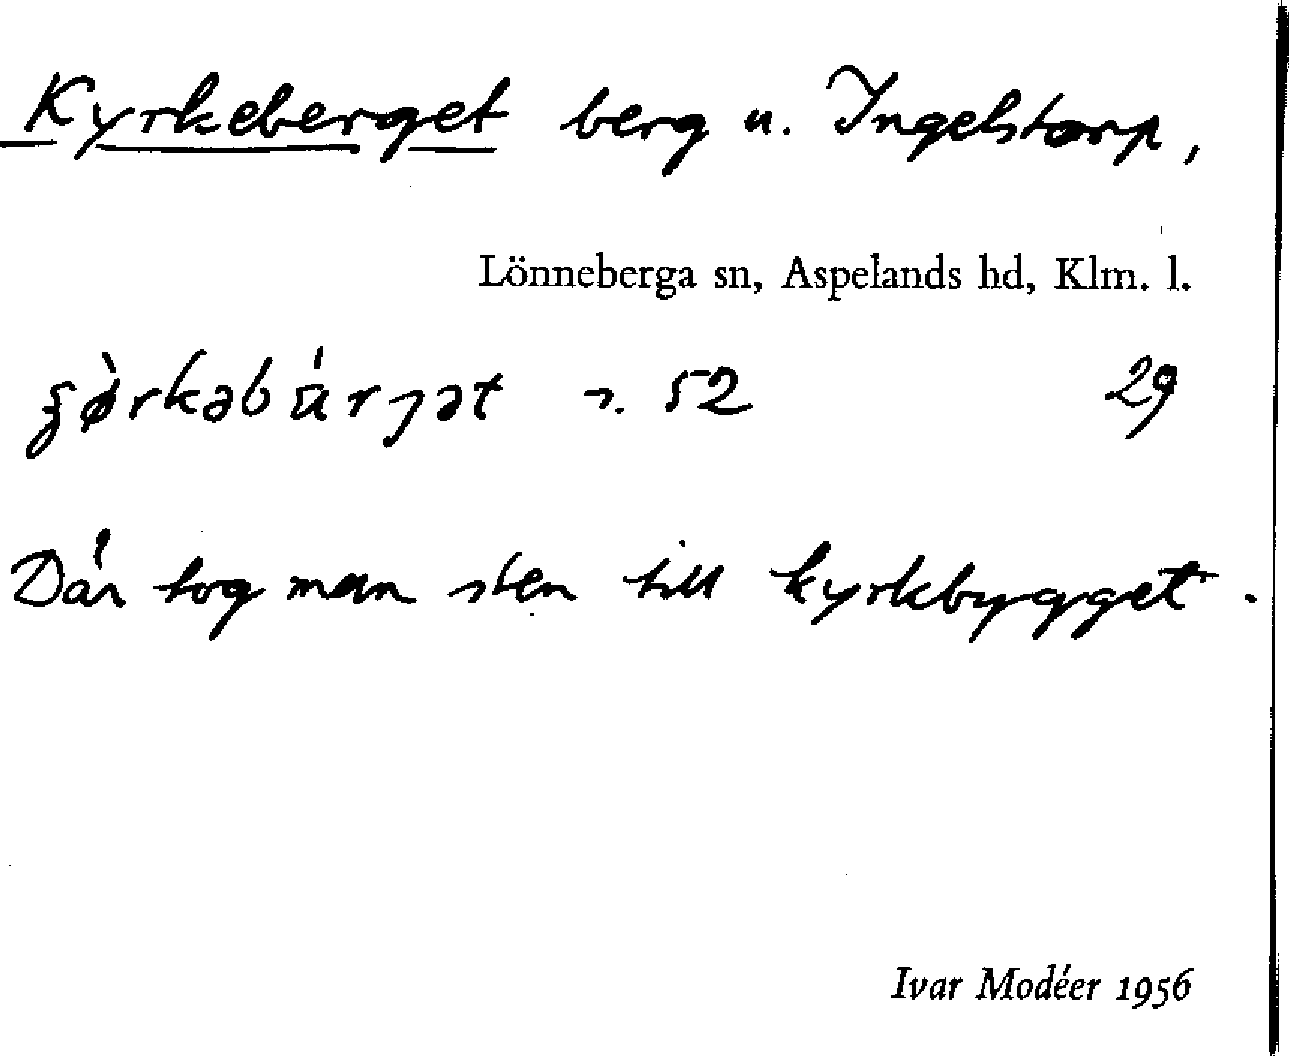 Kyrkeberget berg u. Ingelstorp,
Lönneberga sn, Aspelands hd, Klm. l.
52 29
Där tog man sten till kyrkbygget.
Ivar Modéer 1956